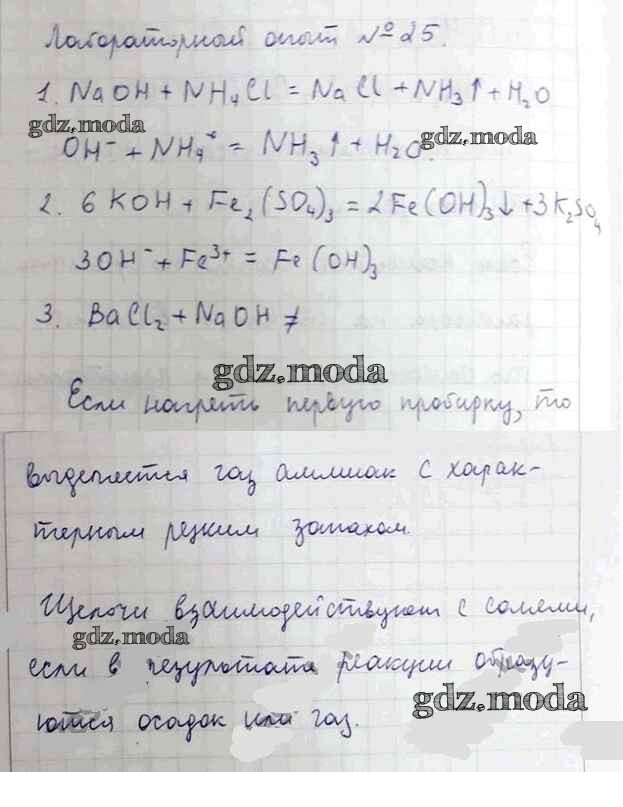 Лабораторный опыт №25.
1. NaOH + NH₄Cl = NaCl + NH₃↑ + H₂O
gdz.moda
gdz.moda
OH⁻ + NH₄⁺ = NH₃↑ + H₂O.
2. 6KOH + Fe₂(SO₄)₃ = 2Fe(OH)₃↓ + 3K₂SO₄
3OH⁻ + Fe³⁺ = Fe(OH)₃
3. BaCl₂ + NaOH ≠
gdz.moda
Если нагреть первую пробирку, то
выделяется газ аммиак с харак-
терным резким запахом.
Щелочи взаимодействуют с солями,
gdz.moda
если в результате реакции образу-
ются осадок или газ.
gdz.moda